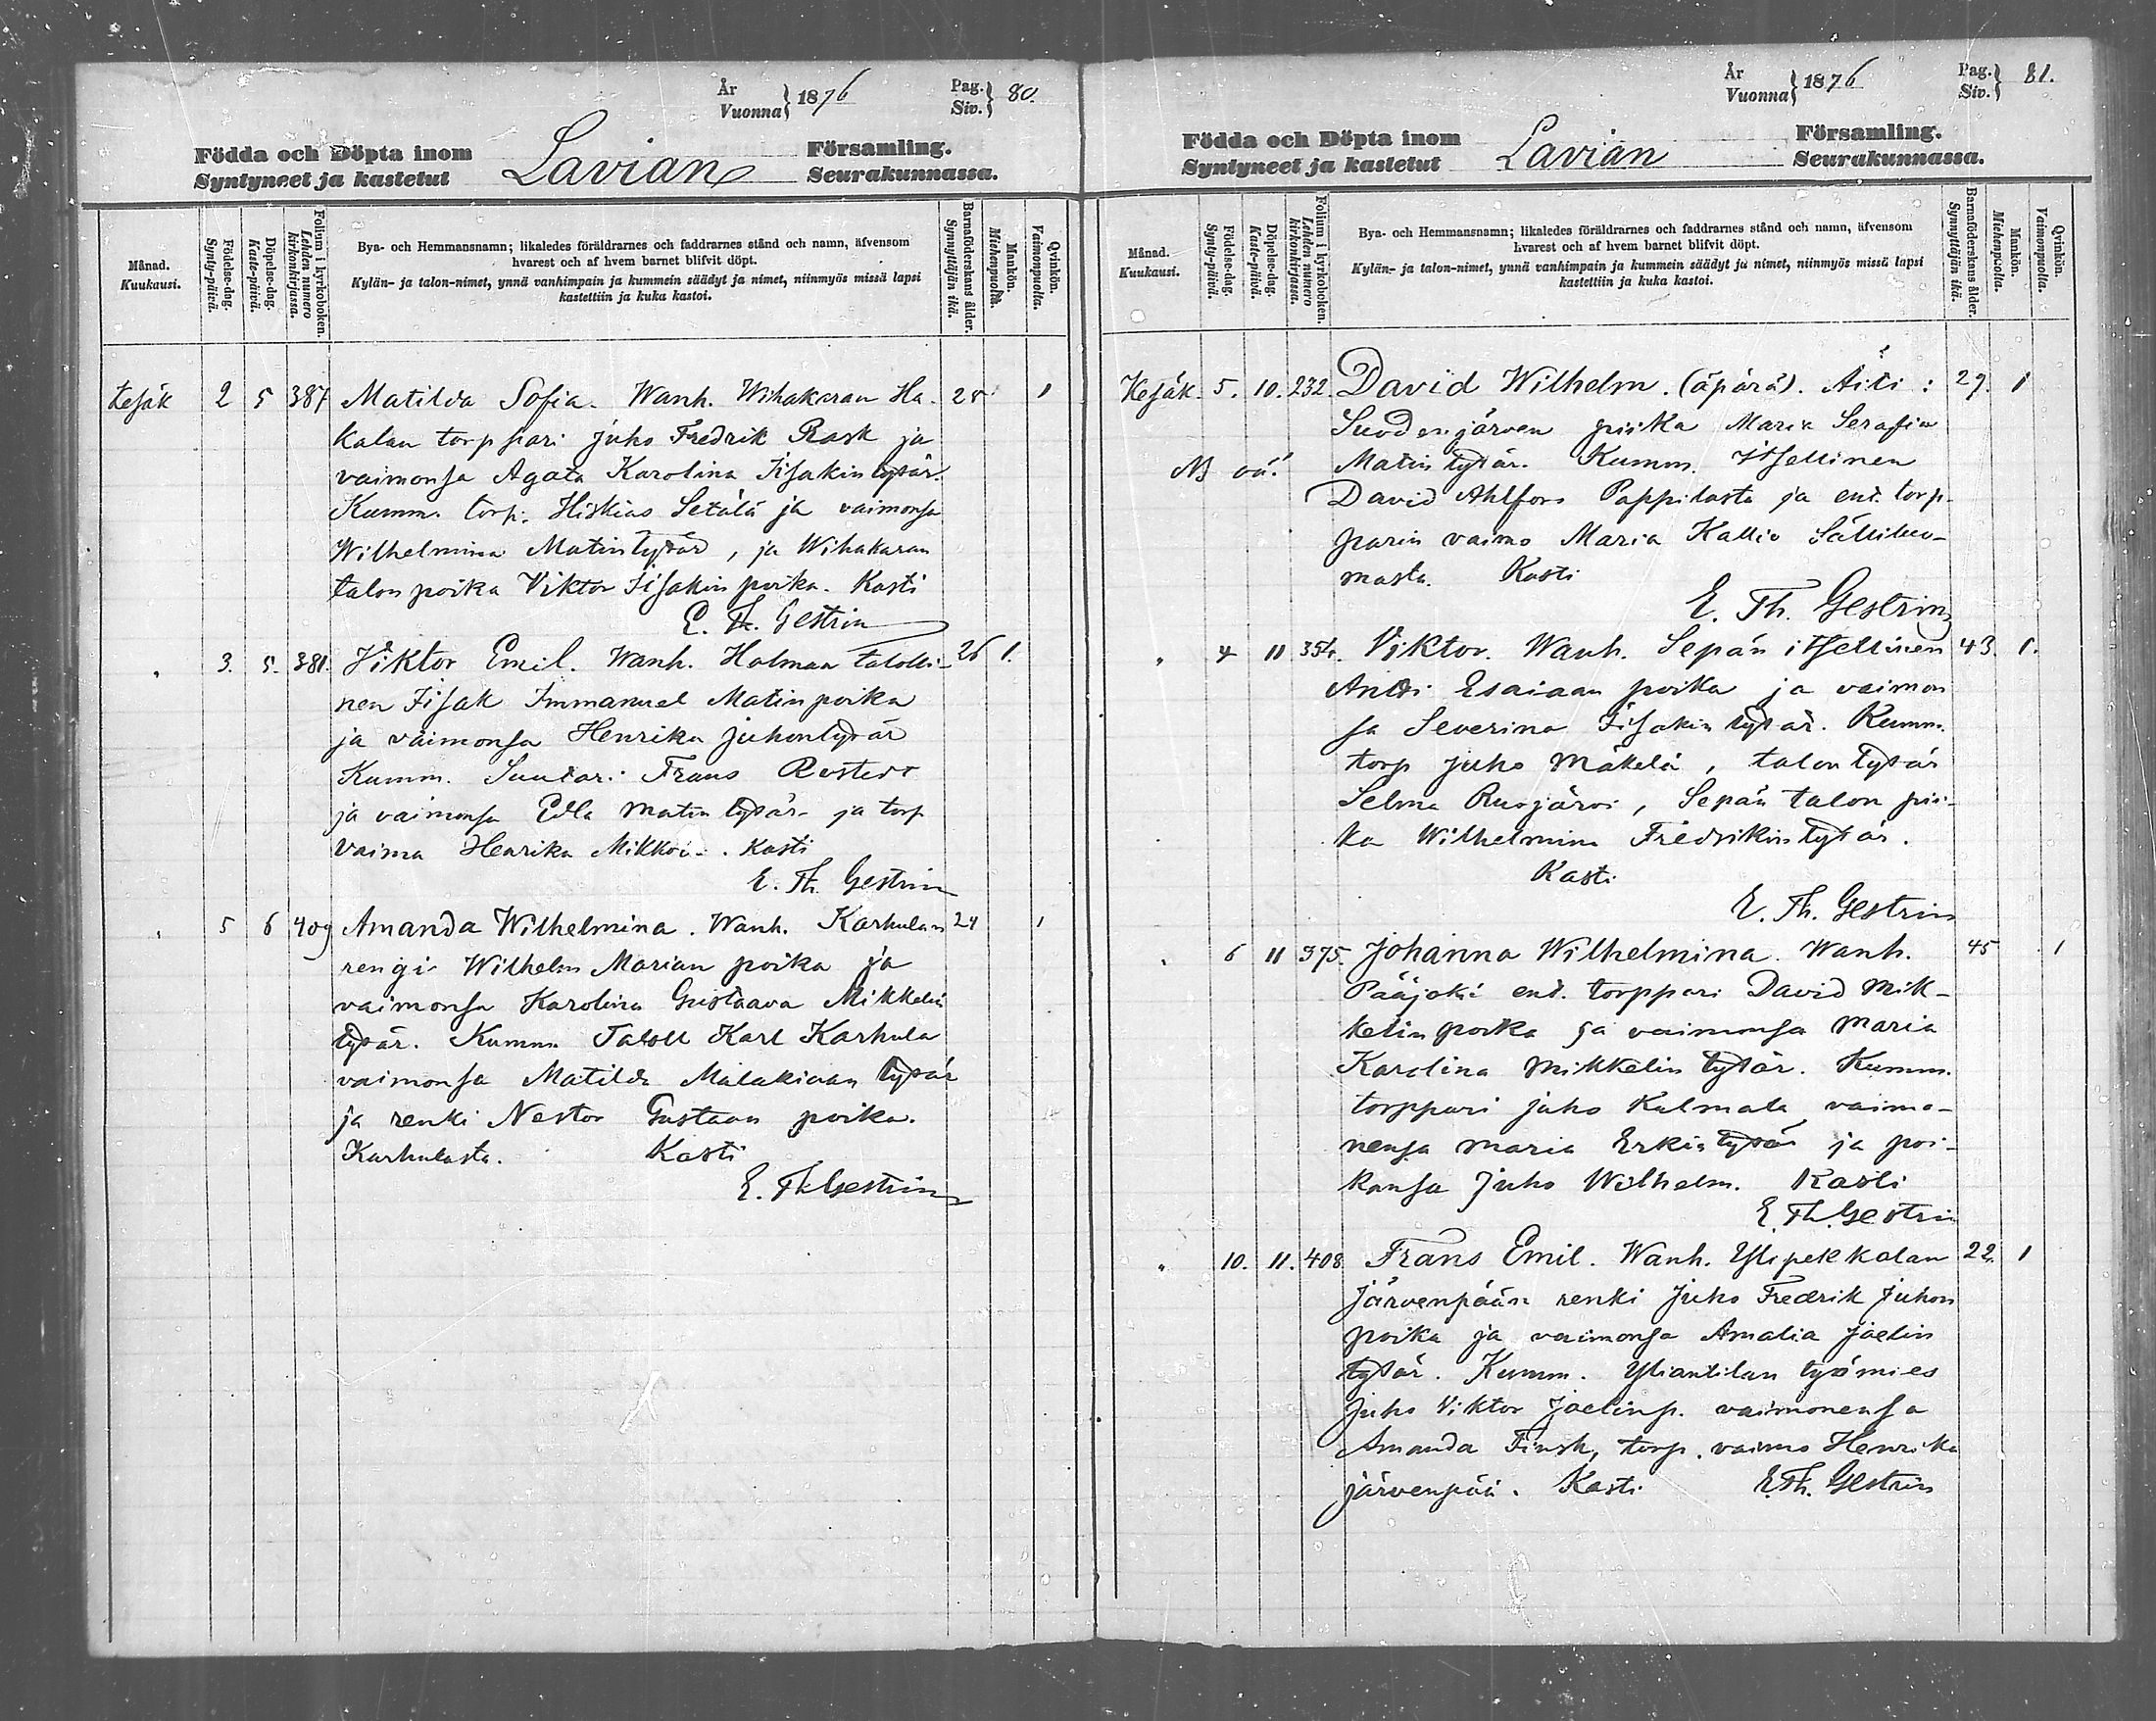 År
Vuonna } 1876 Pag.
Siv. } 80.
Födda och Döpta inom
Syntyneet ja kastetut Lavian Församling.
Seurakunnassa.
Månad.
Kuukausi.
Födelse-dag.
Synty-päivä.
Döpelse-dag.
Kaste-päivä.
Folium i kyrkoboken.
Lehden numero kirkonkirjassa.
Bya- och Hemmansnamn; likaledes föräldrarnes och faddrarnes stånd och namn, äfvensom
hvarest och af hvem barnet blifvit döpt.
Kylän- ja talon-nimet, ynnä vanhimpain ja kummein säädyt ja nimet, niinmyös missä lapsi
kastettiin ja kuka kastoi.
Barnaföderskans ålder.
Synnyttäjän ikä.
Mankön.
Miehenpuolta.
Qvinkön.
Vaimonpuolta.
Kesäk 2 5 387 Matilda Sofia. Wanh. Wihakaran Ha- 28 1
kalan torppari Juho Fredrik Rask ja
vaimonsa Agata Karolina Iisakin tytär.
Kumm. torp. Hiskias Setälä ja vaimonsa
Wilhelmina Matintytär, ja Wihakaran
talon poika Viktor Iisakin poika. Kasti
E. Th. Gestrin
" 3. 5. 381. Viktor Emil. Wanh. Holman talolli- 26 1.
nen Iisak Immanuel Matinpoika
ja vaimonsa Henrika Juhontytär
Kumm. Suutari Frans Rostedt
ja vaimonsa Edla Matin tytär ja torp
vaimo Henrika Mikkoi. Kasti
E. Th. Gestrin
" 5 6 409 Amanda Wilhelmina. Wanh. Karhulan 24 1
rengi Wilhelm Marian poika ja
vaimonsa Karolina Gustaava Mikkelin
tytär. Kumm. Taloll Karl Karhula
vaimonsa Matilda Malakiaan tytär
ja renki Nestor Gustaan poika.
Karhulasta. Kasti
E. Th Gestrin
År
Vuonna } 1876 Pag.
Siv. } 81.
Födda och Döpta inom
Syntyneet ja kastetut Lavian Församling.
Seurakunnassa.
Månad.
Kuukausi.
Födelse-dag.
Synty-päivä.
Döpelse-dag.
Kaste-päivä.
Folium i kyrkoboken.
Lehden numero kirkonkirjassa.
Bya- och Hemmansnamn; likaledes föräldrarnes och faddrarnes stånd och namn, äfvensom
hvarest och af hvem barnet blifvit döpt.
Kylän- ja talon-nimet, ynnä vanhimpain ja kummein säädyt ja nimet, niinmyös missä lapsi
kastettiin ja kuka kastoi.
Barnaföderskans ålder.
Synnyttäjän ikä.
Mankön.
Miehenpuolta.
Qvinkön.
Vaimonpuolta.
Kesäk. 5. 10. 232. David Wilhelm. (äpärä). Äiti: 29. 1
Suodenjärven piika Maria Serafia
NB Matin tytär. Kumm. Itsellinen
David Ahlfors Pappilasta ja ent. torp-
parin vaimo Maria Kallio
masta. Kasti
E. Th. Gestrin
" 4 11 354. Viktor. Wanh. Sepän itsellinen 43. 1.
Antti Esaiaan poika ja vaimon
sa Severina Iisakin tytär. Kumm.
torp Juho Mäkelä, talon tytär
Selma Ruojärvi, Sepän talon pii-
ka Wilhelmina Fredrikin tytär.
Kasti
E. Th. Gestrin
" 6 11 375. Johanna Wilhelmina. Wanh. 45 1
Pääjoki ent. torppari David Mik-
kelin poika ja vaimonsa Maria
Karolina Mikkelin tytär. Kumm.
torppari Juho Kulmala vaimo-
nensa Maria Erkin tytär ja poi-
kansa Juho Wilhelm. Kasti
E. Th. Gestrin
" 10. 11. 408 Frans Emil. Wanh. Ylipekkalan 22. 1
Järvenpään renki Juho Fredrik Juhon
poika ja vaimonsa Amalia Joelin
tytär. Kumm. Yliantilan työmies
Juho Viktor Joelinp. vaimonensa
Amanda Finsk, torp. vaimo Henrika
Järvenpää. Kasti E. Th. Gestrin